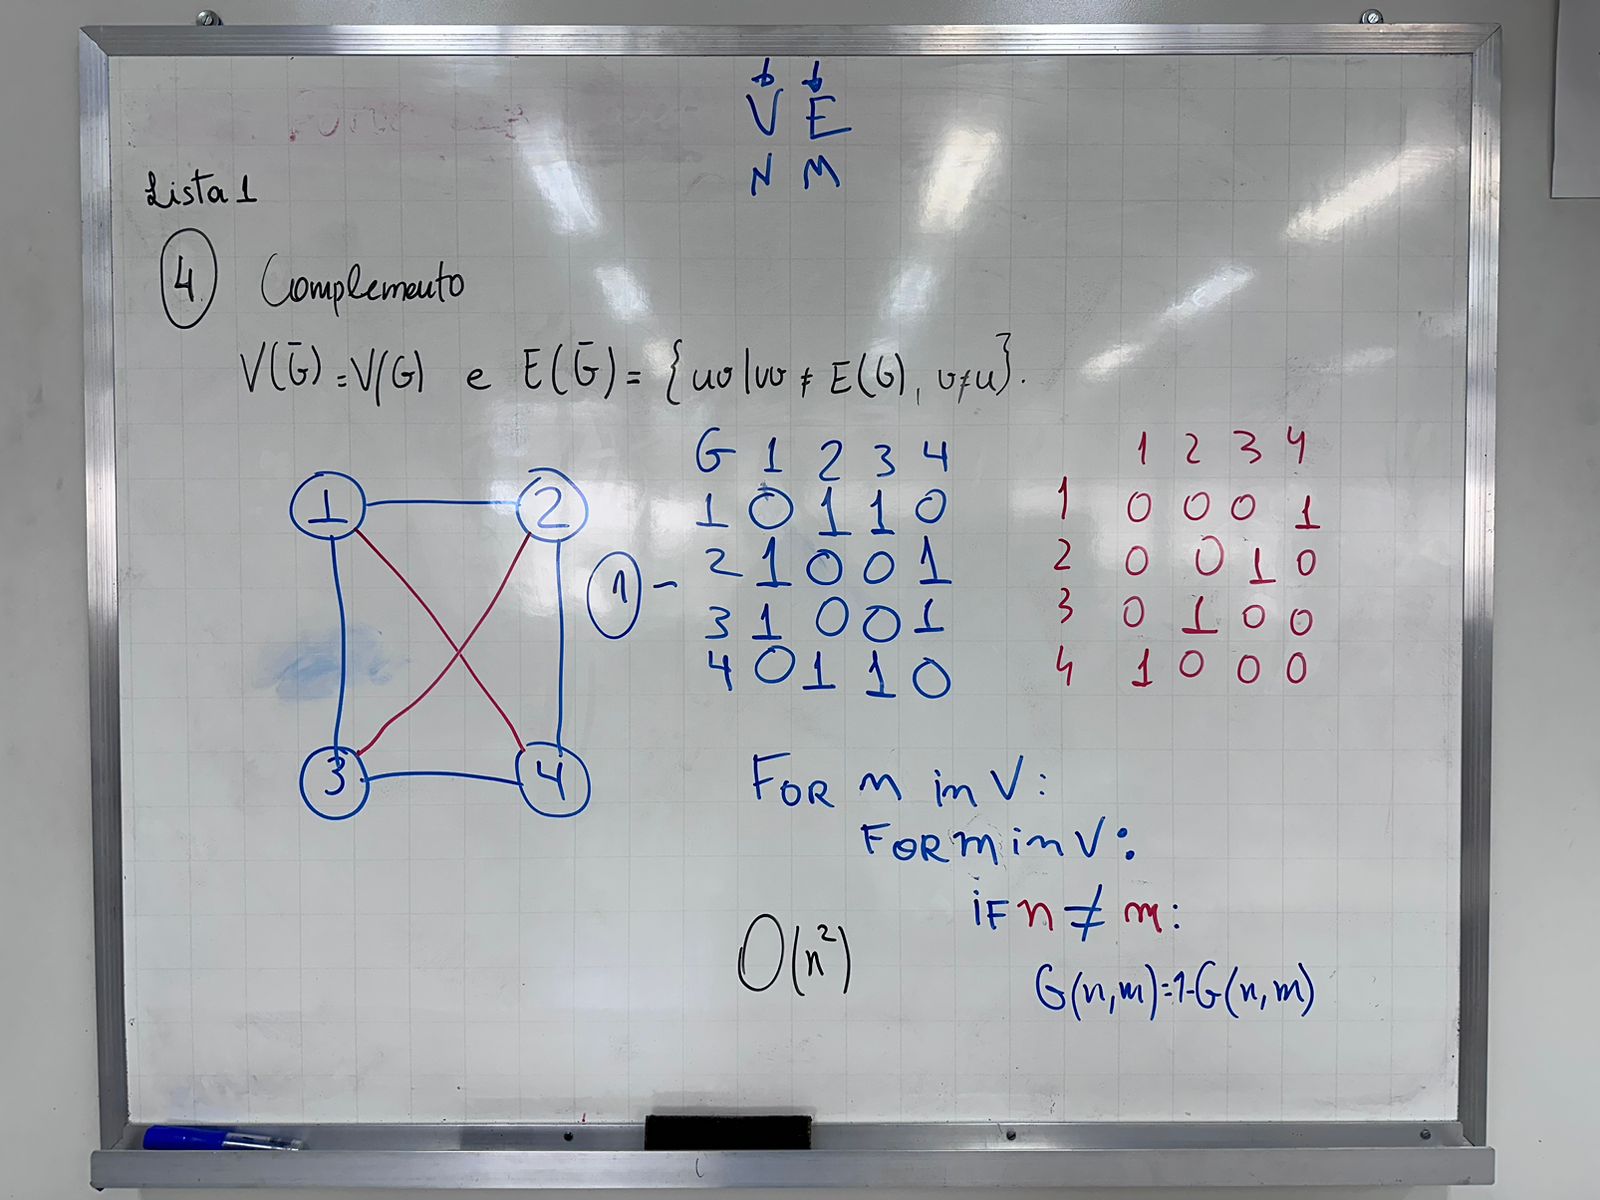 V E
N M
Lista 1
4 Complemento
V(Ḡ) = V(G) e E(Ḡ) = {uv | uv ≠ E(G), v≠u}.
1 2 3 4
G 1 2 3 4
1 0 1 1 0
2 1 0 0 1
3 1 0 0 1
4 0 1 1 0
1 -
1 2 3 4
1 0 0 0 1
2 0 0 1 0
3 0 1 0 0
4 1 0 0 0
FOR n in V:
FOR m in V:
iF n ≠ m:
G(n,m)=1-G(n,m)
O(n²)